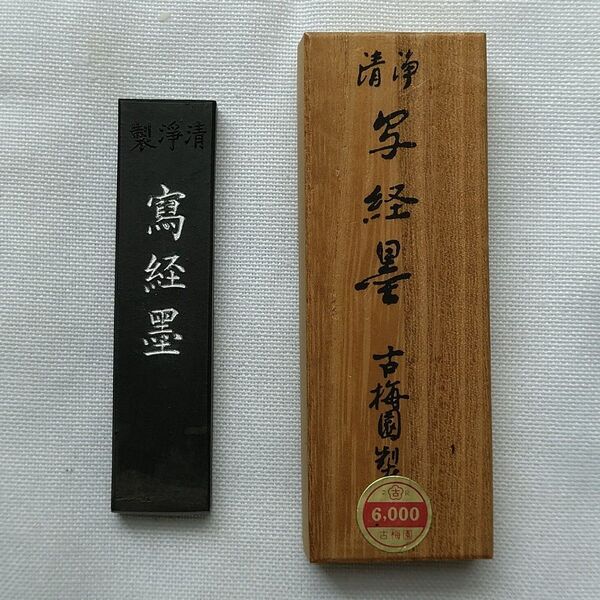 清淨製
寫経墨
清浄
写経墨
古梅園製
古
6,000
古梅園